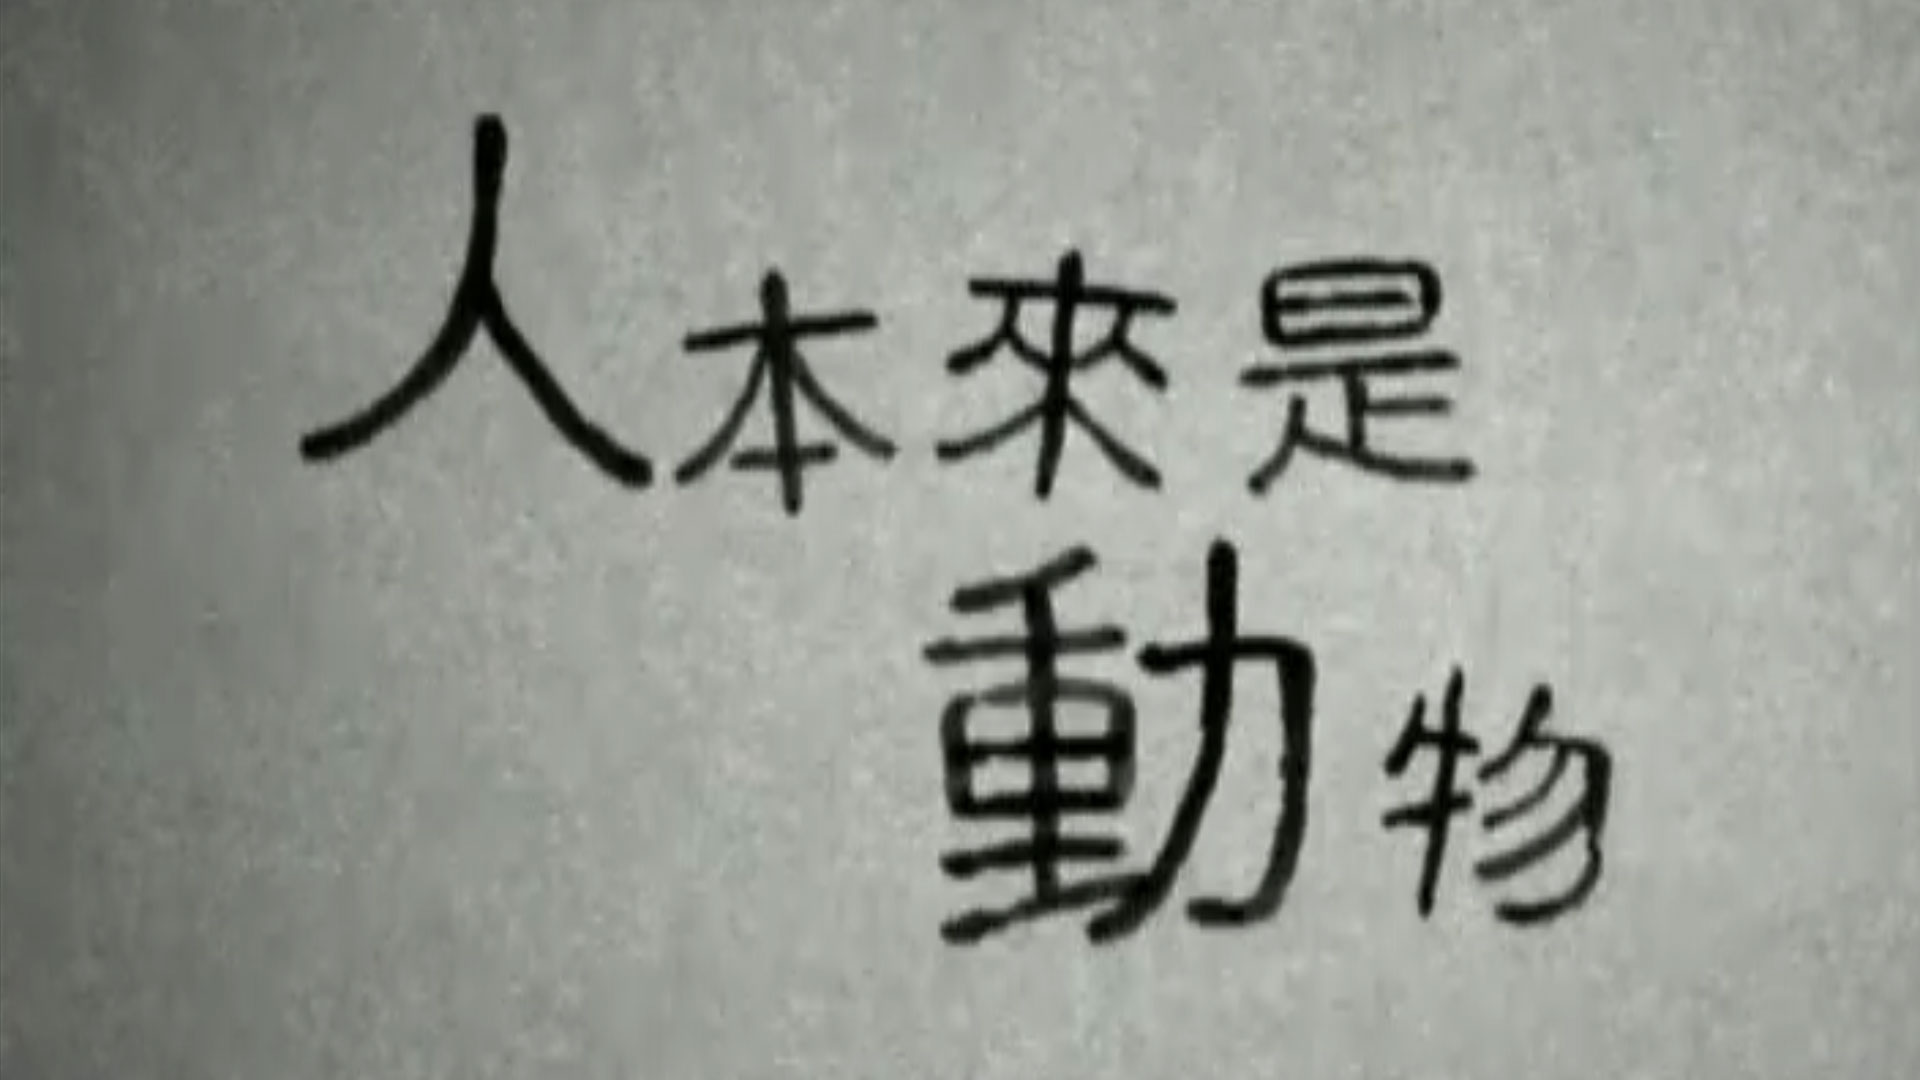 人本來是
動物